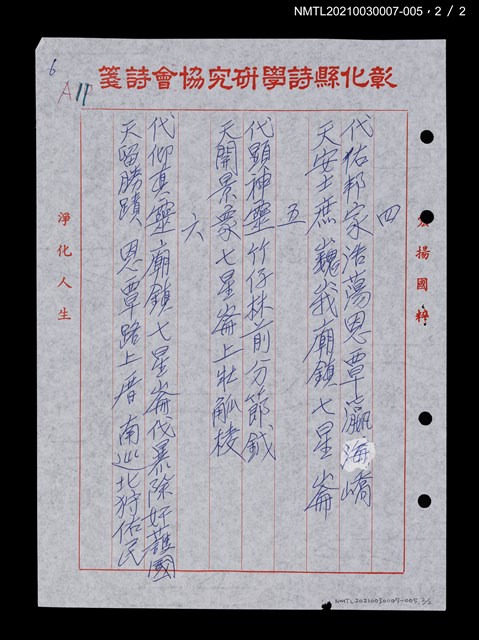 NMTL20210030007-005，2 / 2
彰化縣詩學研究協會詩箋
6
A11
揚國粹
四
代佑邦家浩蕩恩覃瀛海嶠
天安士庶巍峩廟鎮七星崙
五
代顯神靈竹仔林前分節鉞
天開景象七星崙上壯觚棱
六
代仰真靈廟鎮七星崙伐暴除奸護國
天留勝蹟恩覃路上厝南巡北狩佑民
淨化人生
NMTL20210030007-005 2/2